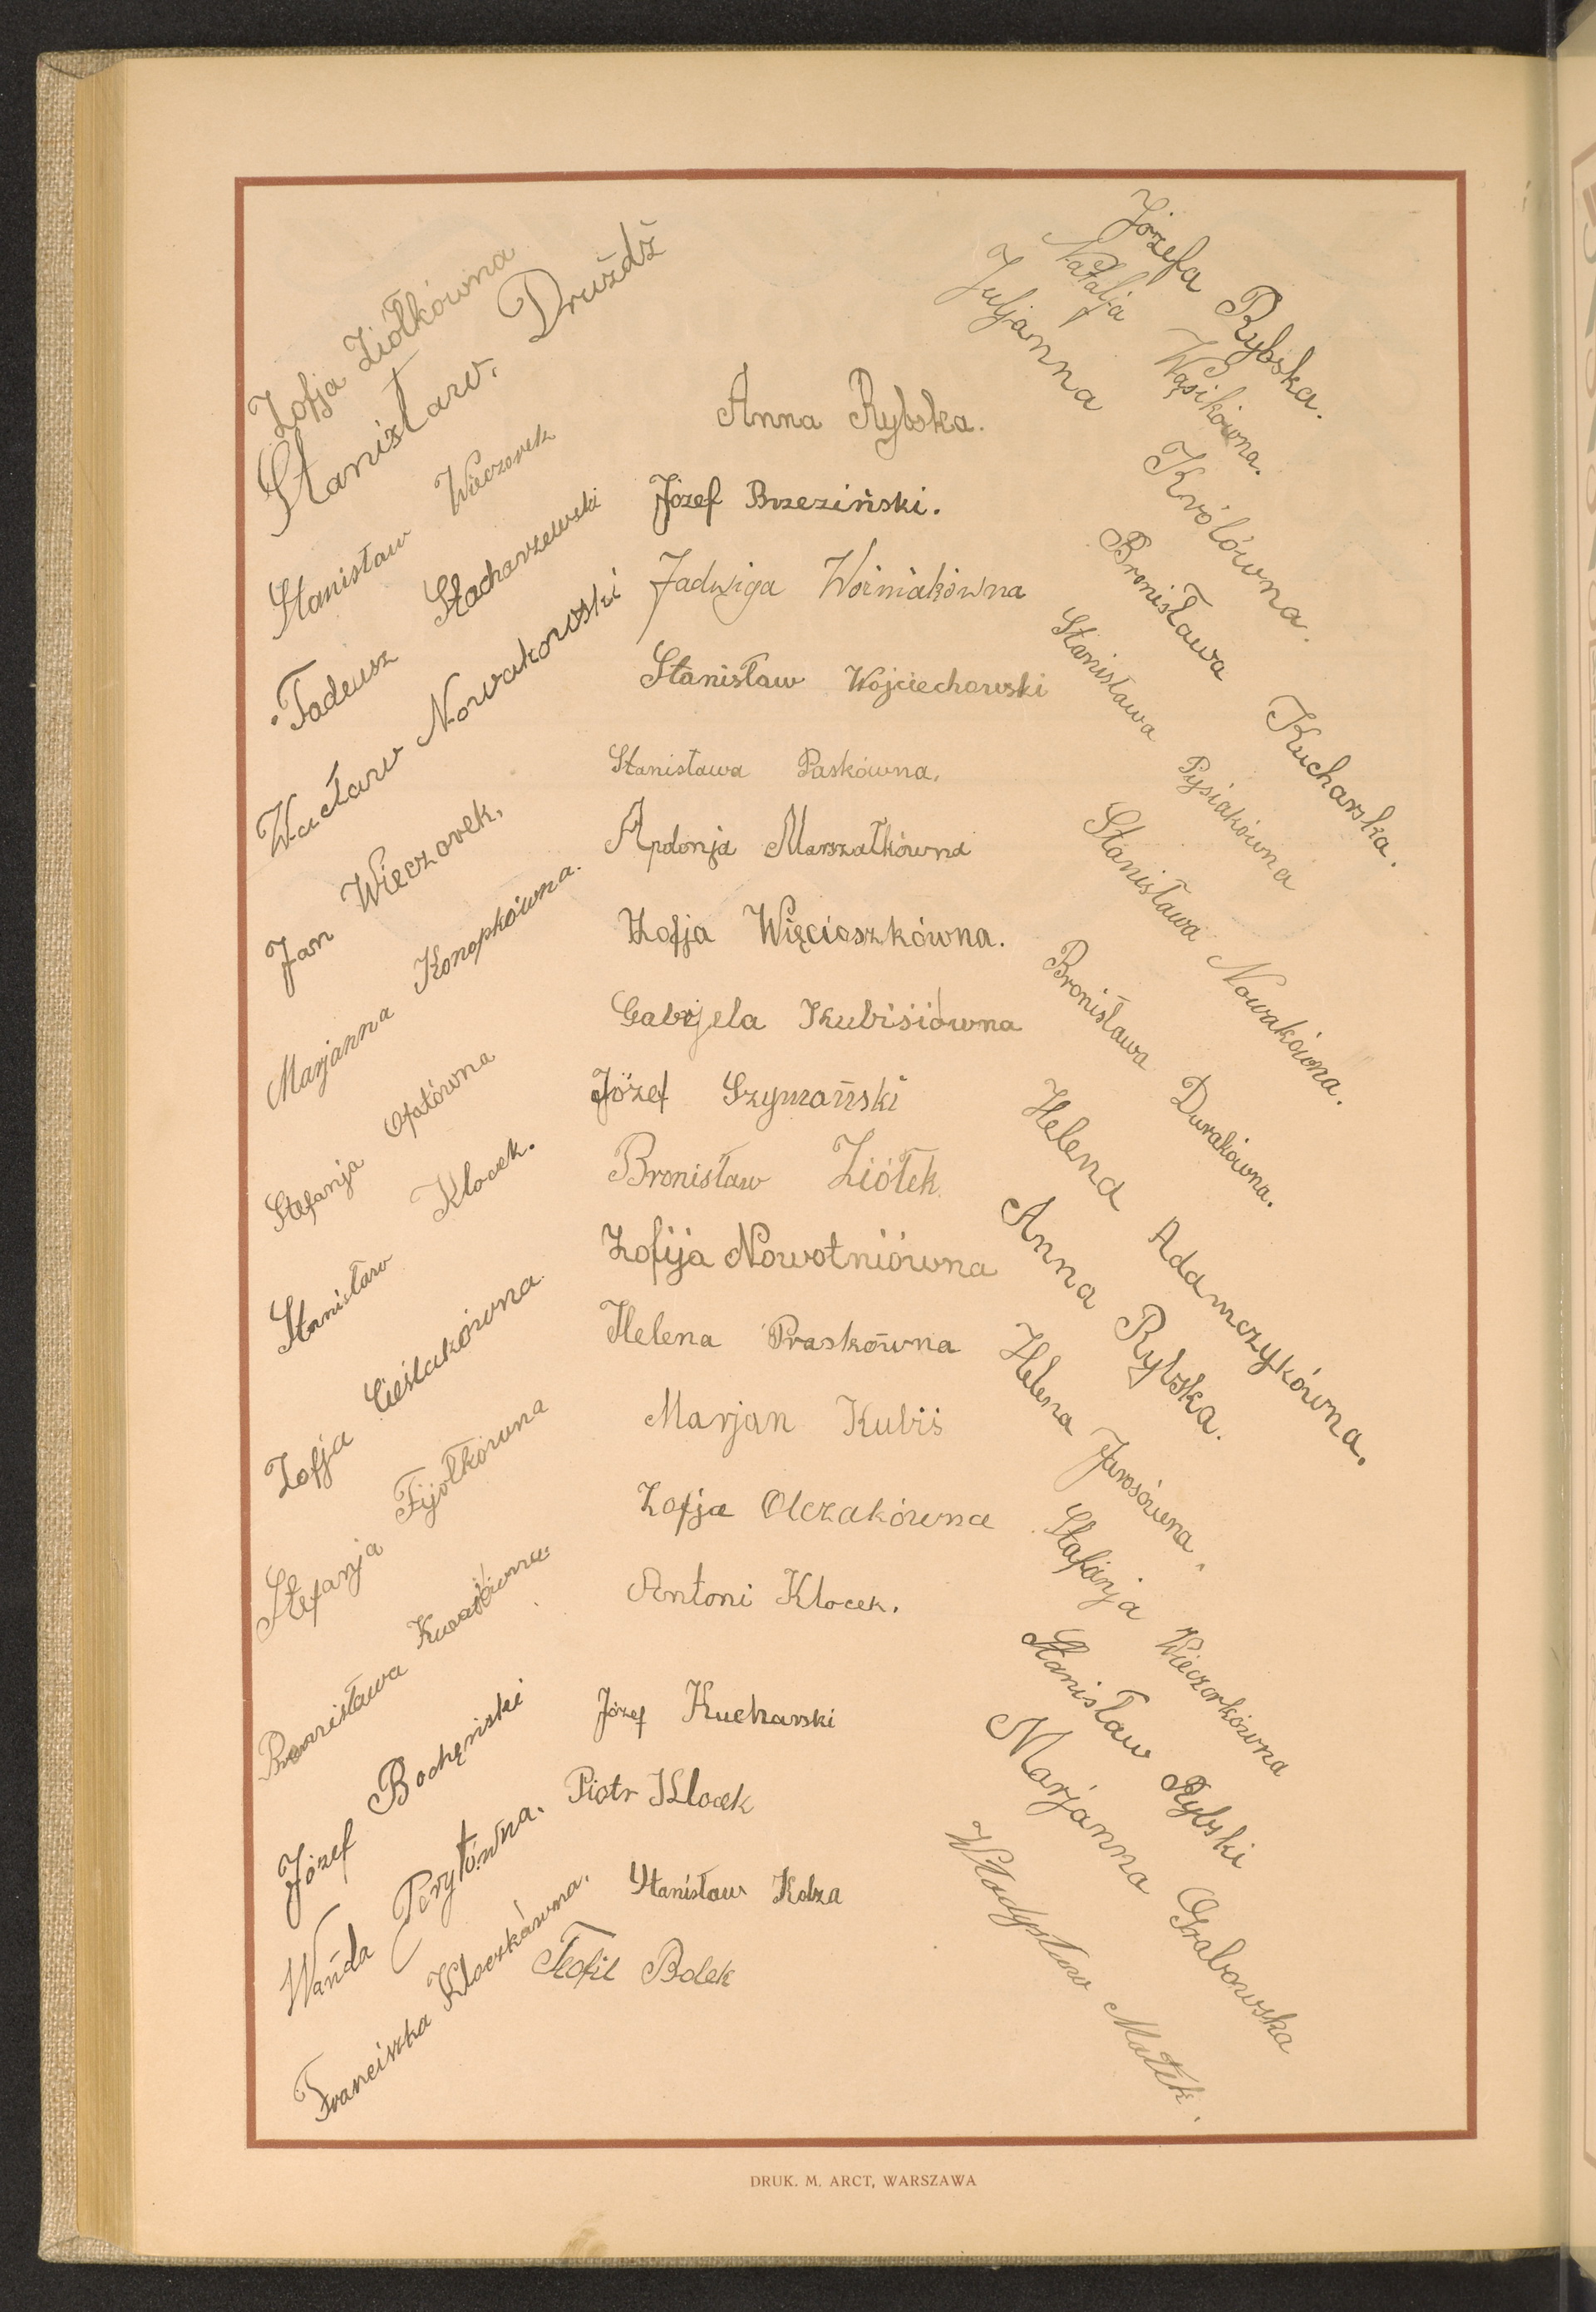 Zofja Ziółkówna
Stanisław. Drużdż
Stanisław Wieczorek
Tadeusz Stacharzewski
Wacław Nowakowski
Jan Wieczorek,
Marjanna Konopkówna.
Stefanja Opatówna
Stanisław Klocek.
Zofja Cieślakówna.
Stefanja Fijołkówna
Bronisława
Józef Bochęński
Wańda Perytówna.
Franciszka Kloczkówna,
Anna Rybska.
Józef Brzeziński.
Jadwiga Woźniakówna
Stanisław Wojciechowski
Stanisława Paskówna,
Apolonja Marszałkówna
Zofja Więcioszkówna.
Gabrjela Kubisiówna
Józef Szymański
Bronisław Ziółek
Zofija Nowotniówna
Helena Praskówna
Marjan Kubiś
Zofja Olczakówna
Antoni Klocek.
Józef Kucharski
Piotr Klocek
Stanisław Kołza
Teofil Bolek
Józefa Rybska.
Natalja Wąsikówna.
Juljanna Królówna.
Bronisława Kucharska.
Stanisława Pysiakówna
Stanisława Nowakówna.
Bronisława Durakówna.
Helena Adamczykówna.
Anna Rybska.
Helena Jarosówna.
Stafanja Wieczorkówna
Stanisław Rybski
Marjanna Grabowska
Władysław Małek.
DRUK. M. ARCT, WARSZAWA